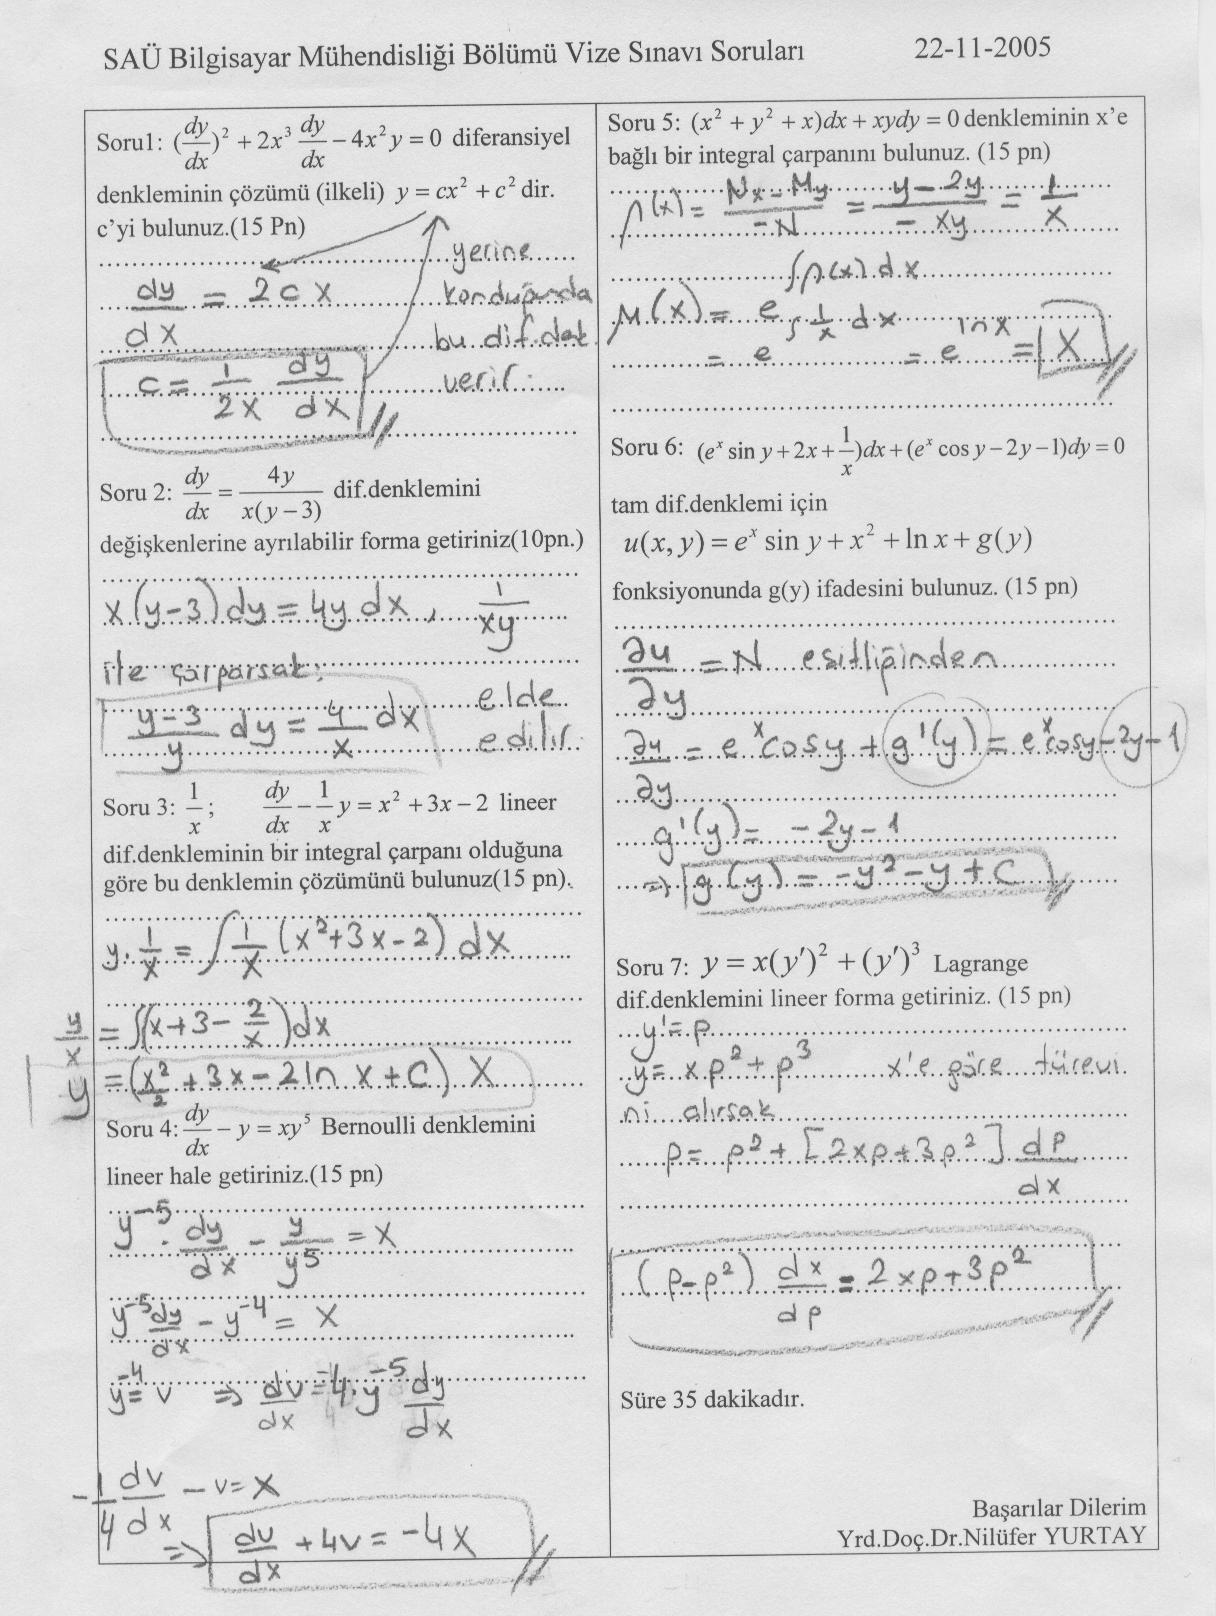 SAÜ Bilgisayar Mühendisliği Bölümü Vize Sınavı Soruları 22-11-2005
Soru1: (dy/dx)² + 2x³ dy/dx − 4x²y = 0 diferansiyel
denkleminin çözümü (ilkeli) y = cx² + c² dir.
c'yi bulunuz.(15 Pn)
yerine
dy/dx = 2cx konduğunda
bu dif.dek.
c = 1/2x dy/dx verir.
Soru 2: dy/dx = 4y/x(y−3) dif.denklemini
değişkenlerine ayrılabilir forma getiriniz(10pn.)
x(y−3)dy = 4y dx, 1/xy
ile çarparsak;
y−3/y dy = 4/x dx elde
edilir.
Soru 3: 1/x; dy/dx − 1/x y = x² + 3x − 2 lineer
dif.denkleminin bir integral çarpanı olduğuna
göre bu denklemin çözümünü bulunuz(15 pn).
y. 1/x = ∫ 1/x (x²+3x−2) dx
y/x = ∫(x+3− 2/x)dx
y = (x²/2 + 3x − 2ln x + C) x
Soru 4: dy/dx − y = xy⁵ Bernoulli denklemini
lineer hale getiriniz.(15 pn)
y⁻⁵ . dy/dx − y/y⁵ = x
y⁻⁵ dy/dx − y⁻⁴ = x
y⁻⁴ = v ⇒ dv/dx = −4.y⁻⁵ dy/dx
−1/4 dv/dx − v = x
⇒ dv/dx + 4v = −4x
Soru 5: (x² + y² + x)dx + xydy = 0 denkleminin x'e
bağlı bir integral çarpanını bulunuz. (15 pn)
p(x) = Nx − My/−N = y − 2y/−xy = 1/x
μ(x) = e^∫p(x)dx
= e^∫1/x dx = e^lnx = x
Soru 6: (eˣ sin y + 2x + 1/x)dx + (eˣ cos y − 2y − 1)dy = 0
tam dif.denklemi için
u(x, y) = eˣ sin y + x² + ln x + g(y)
fonksiyonunda g(y) ifadesini bulunuz. (15 pn)
∂u/∂y = N eşitliğinden
∂u/∂y = eˣcosy + g'(y) = eˣcosy − 2y − 1
g'(y) = −2y − 1
⇒ g(y) = −y² − y + C
Soru 7: y = x(y′)² + (y′)³ Lagrange
dif.denklemini lineer forma getiriniz. (15 pn)
y' = p
y = xp² + p³ x'e göre türevi
ni alırsak
p = p² + [2xp + 3p²] dp/dx
(p−p²) dx/dp = 2xp + 3p²
Süre 35 dakikadır.
Başarılar Dilerim
Yrd.Doç.Dr.Nilüfer YURTAY